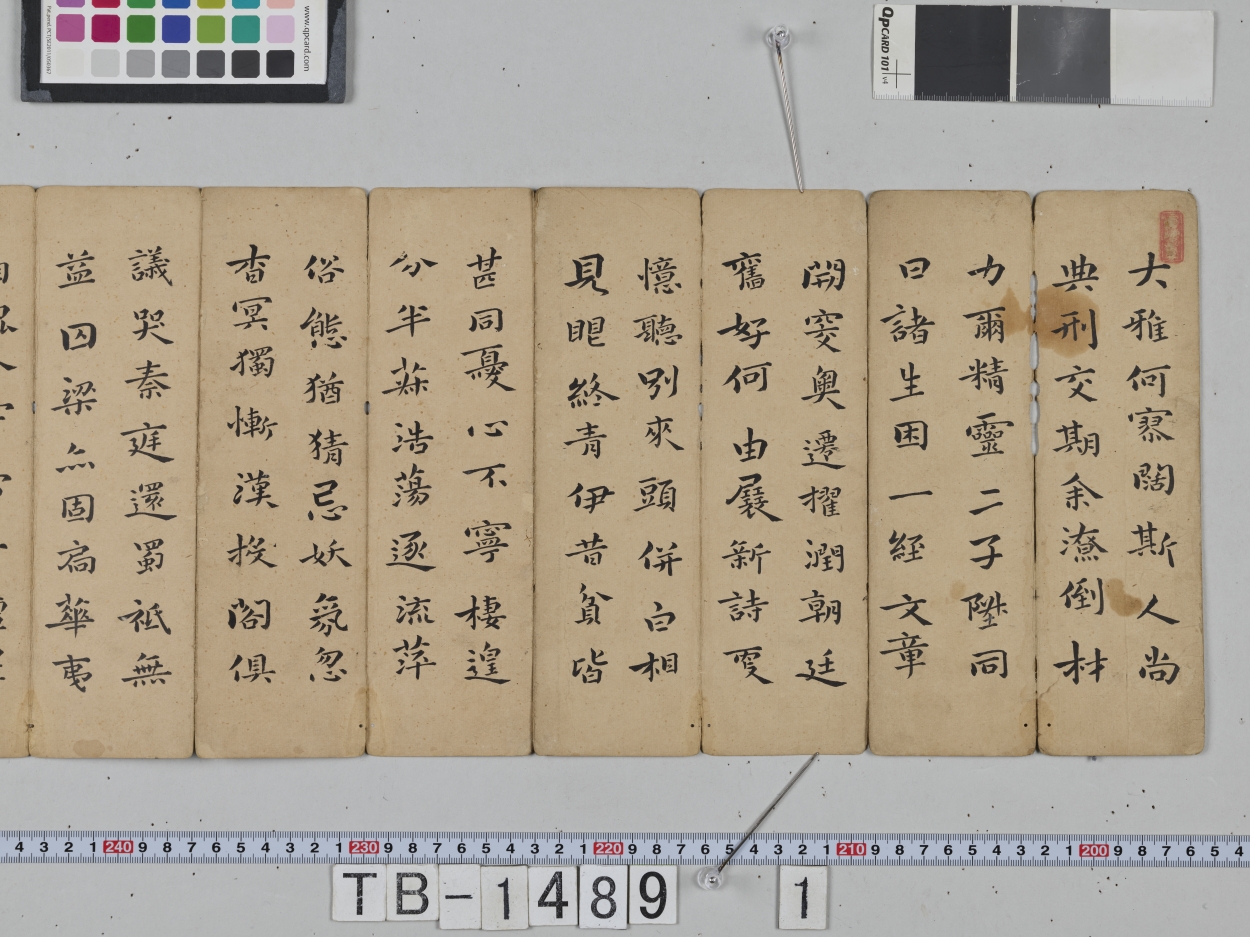 大雅何寥闊斯人尚
典刑交期余潦倒材
力爾精靈二子陞同
日諸生困一經文章
開窔奧遷擢潤朝廷
舊好何由展新詩更
憶聽別來頭併白相
見眼終青伊昔貧皆
甚同憂心不寧棲遑
分半菽浩蕩逐流萍
俗態猶猜忌妖氛忽
杳冥獨慚漢投閣俱
議哭秦庭還蜀祗無
益囚梁亦固扃華夷
www.qpcard.com
QPCARD 101 v4
4 3 2 1 240 9 8 7 6 5 4 3 2 1 230 9 8 7 6 5 4 3 2 1 220 9 8 7 6 5 4 3 2 1 210 9 8 7 6 5 4 3 2 1 200 9 8 7 6 5 4
TB-1489 1